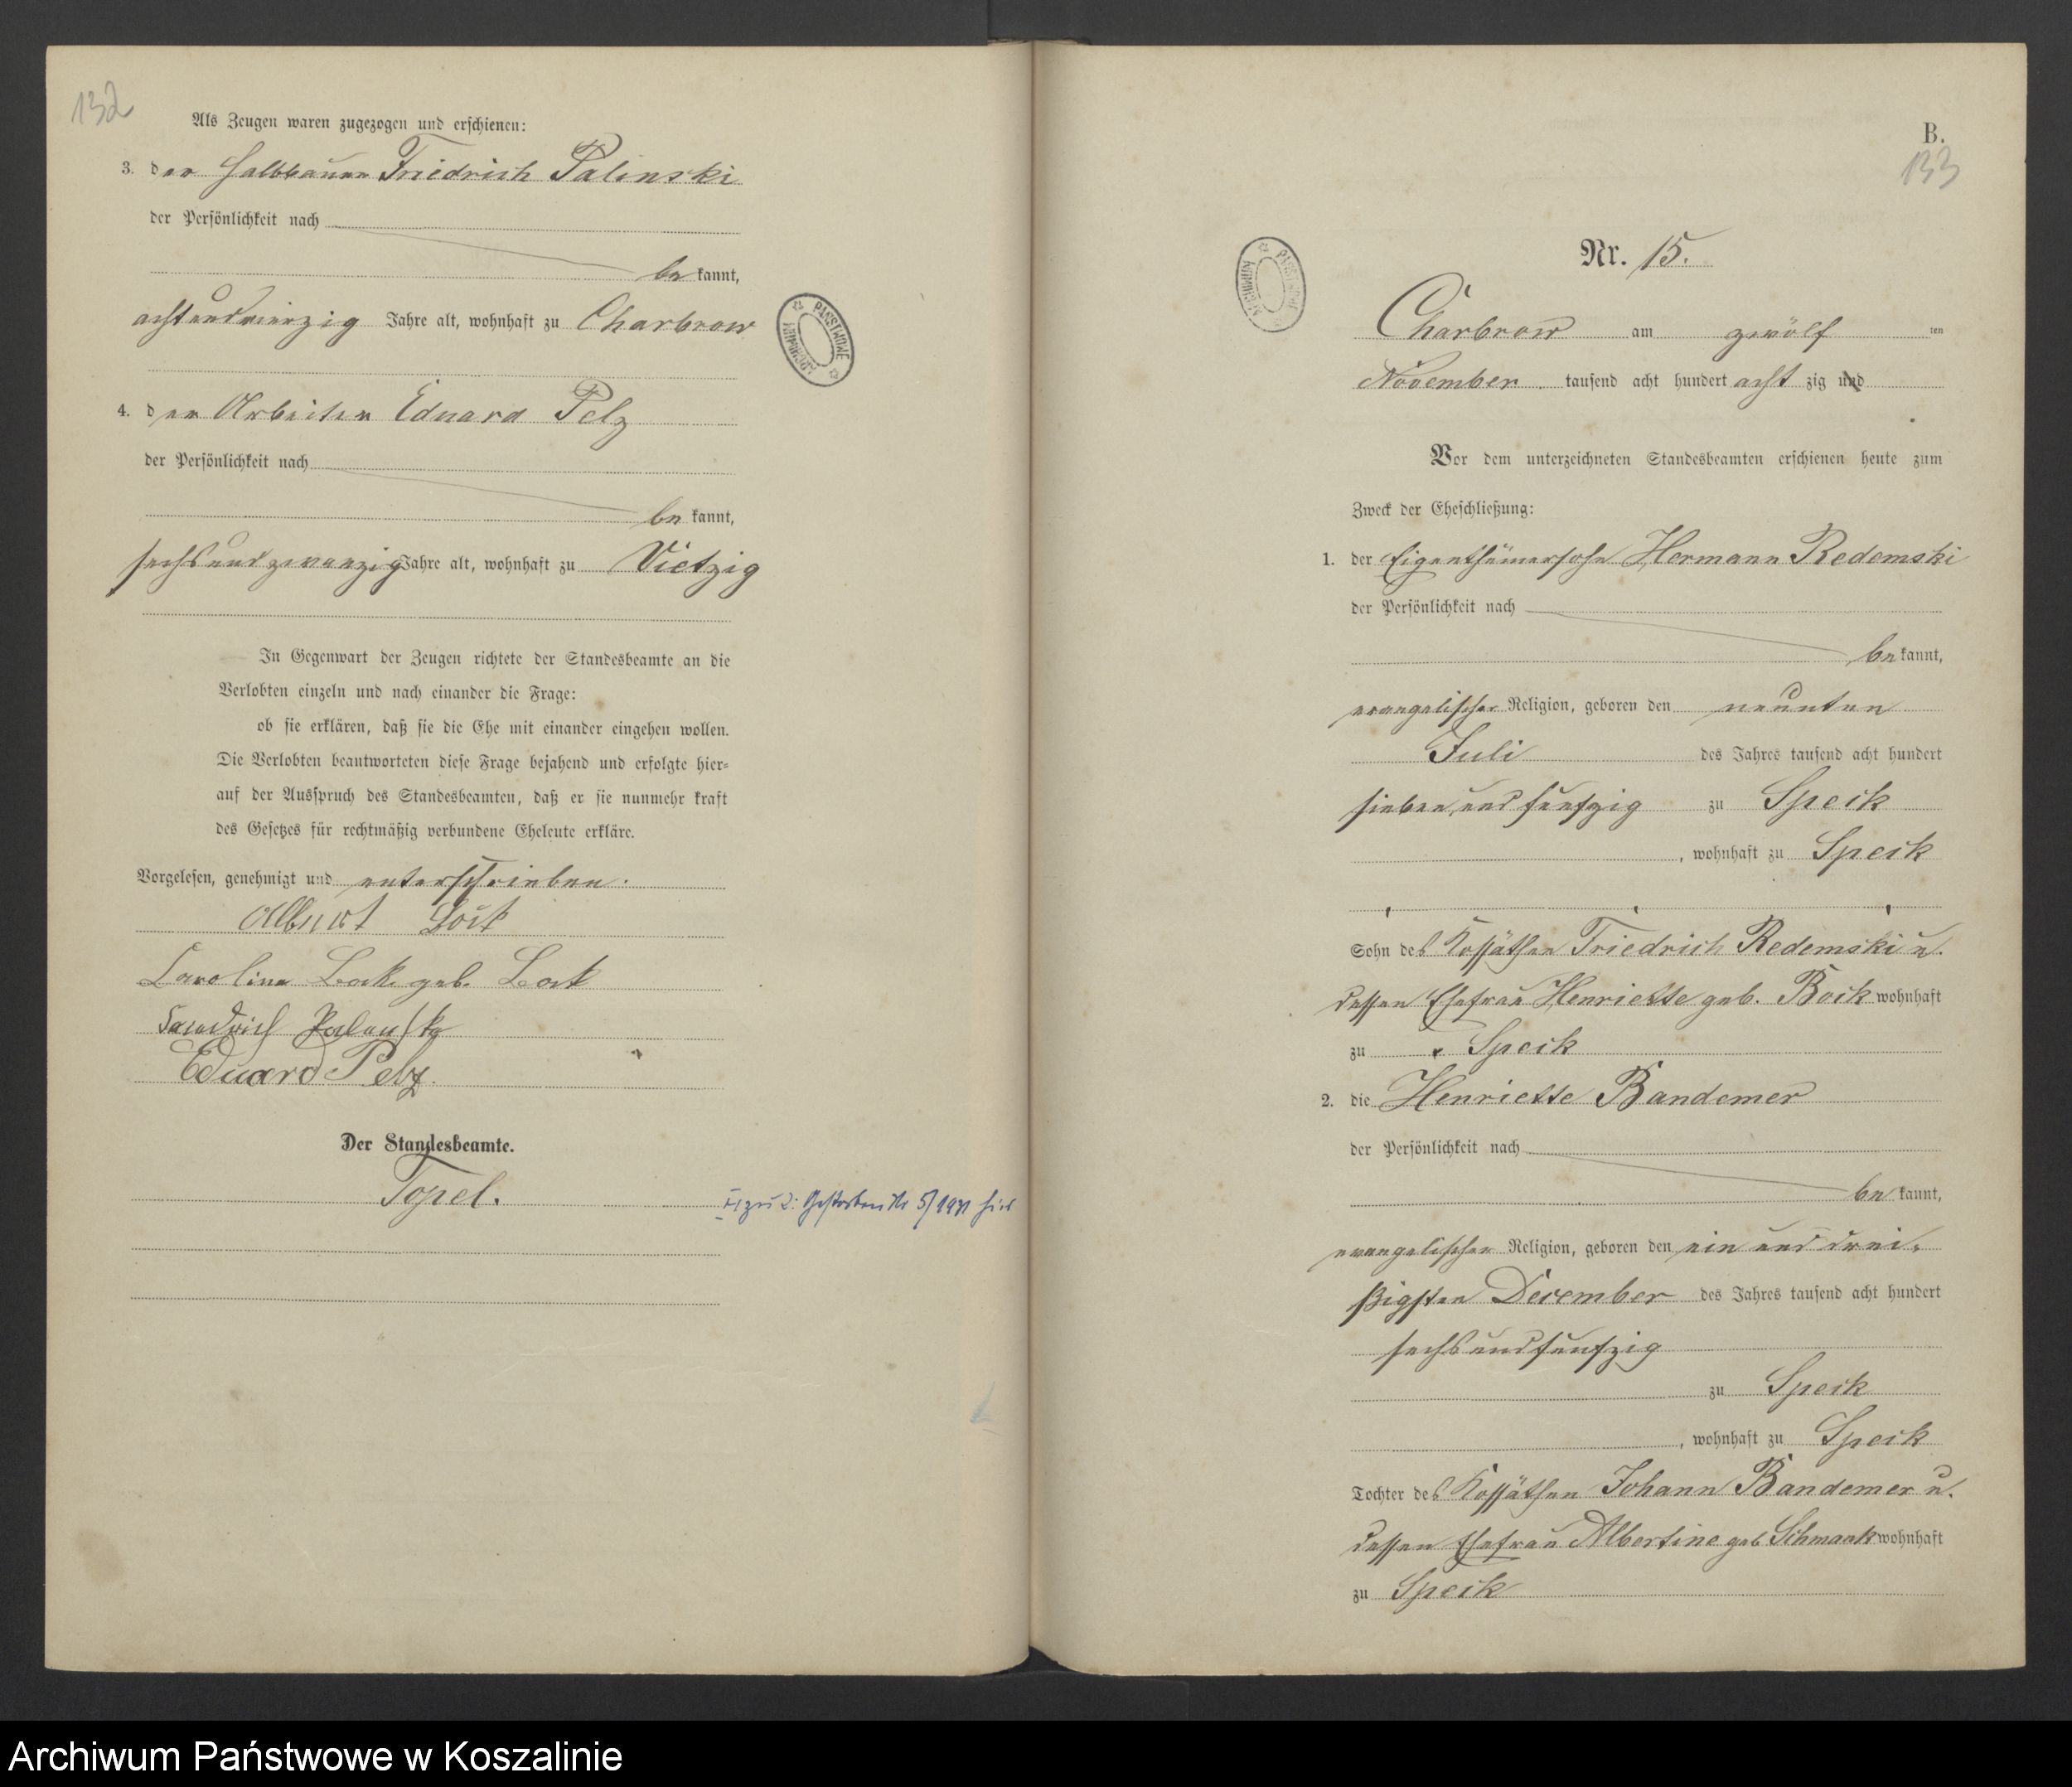 132
Als Zeugen waren zugezogen und erschienen:
3. der Halbbauer Friedrich Palinski
der Persönlichkeit nach
be kannt,
achtundvierzig Jahre alt, wohnhaft zu Charbrow
4. der Arbeiter Eduard Pelz
der Persönlichkeit nach
be kannt,
sechsundzwanzig Jahre alt, wohnhaft zu Vietzig
In Gegenwart der Zeugen richtete der Standesbeamte an die
Verlobten einzeln und nach einander die Frage:
ob sie erklären, daß sie die Ehe mit einander eingehen wollen.
Die Verlobten beantworteten diese Frage bejahend und erfolgte hier-
auf der Ausspruch des Standesbeamten, daß er sie nunmehr kraft
des Gesetzes für rechtmäßig verbundene Eheleute erkläre.
Vorgelesen, genehmigt und unterschrieben.
Albert
Caroline geb.
Eduard Pelz
Der Standesbeamte.
Topel.
zu 2: Gestorben Nr 5/ hier
PAŃSTWOWE ARCHIWUM
B.
133
PAŃSTWOWE ARCHIWUM
Nr. 15.
Charbrow am zwölf ten
November tausend acht hundert acht zig und
Vor dem unterzeichneten Standesbeamten erschienen heute zum
Zweck der Eheschließung:
1. der Eigenthümersohn Hermann Redemski
der Persönlichkeit nach
be kannt,
evangelischer Religion, geboren den neunten
Juli des Jahres tausend acht hundert
sieben und funfzig zu Speck
, wohnhaft zu Speck
Sohn des Kossäthen Friedrich Redemski u.
dessen Ehefrau Henriette geb. Bock wohnhaft
zu Speck
2. die Henriette Bandemer
der Persönlichkeit nach
be kannt,
evangelischer Religion, geboren den ein und drei-
ßigsten December des Jahres tausend acht hundert
sechsundfunfzig
zu Speck
, wohnhaft zu Speck
Tochter des Kossäthen Johann Bandemer u.
dessen Ehefrau Albertine geb Schmaak wohnhaft
zu Speck
Archiwum Państwowe w Koszalinie